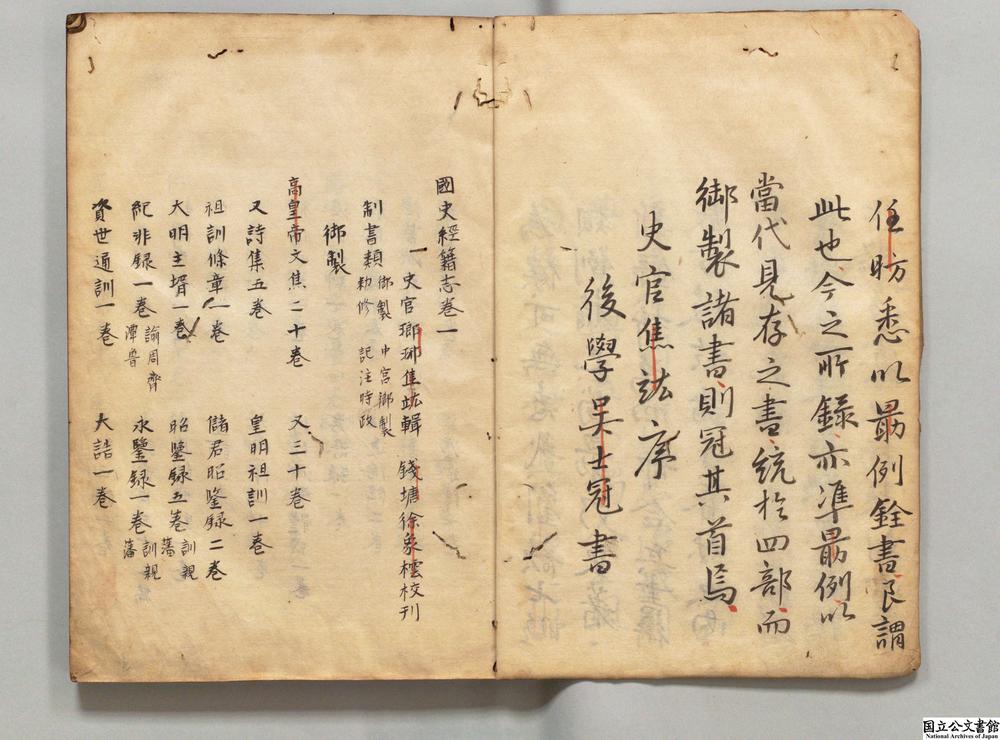 任昉悉以㝡例銓書良謂
此也今之所錄亦準㝡例以
當代見存之書統於四部而
御製諸書則冠其首焉
史官焦竑序
後學吳士冠書
國史經籍志卷一
史官瑯琊焦竑輯 錢塘徐象橒校刋
制書類 御製 中宮御製 勅修 記注時政
御製
高皇帝文集二十卷 又三十卷
又詩集五卷 皇明祖訓一卷
祖訓條章一卷 儲君昭鑒録二卷
大明主壻一卷 昭鑒録五卷 訓親藩
紀非録一卷 諭周齊潭魯 永鑒録一卷 訓親藩
資世通訓一卷 大誥一卷
国立公文書館
National Archives of Japan